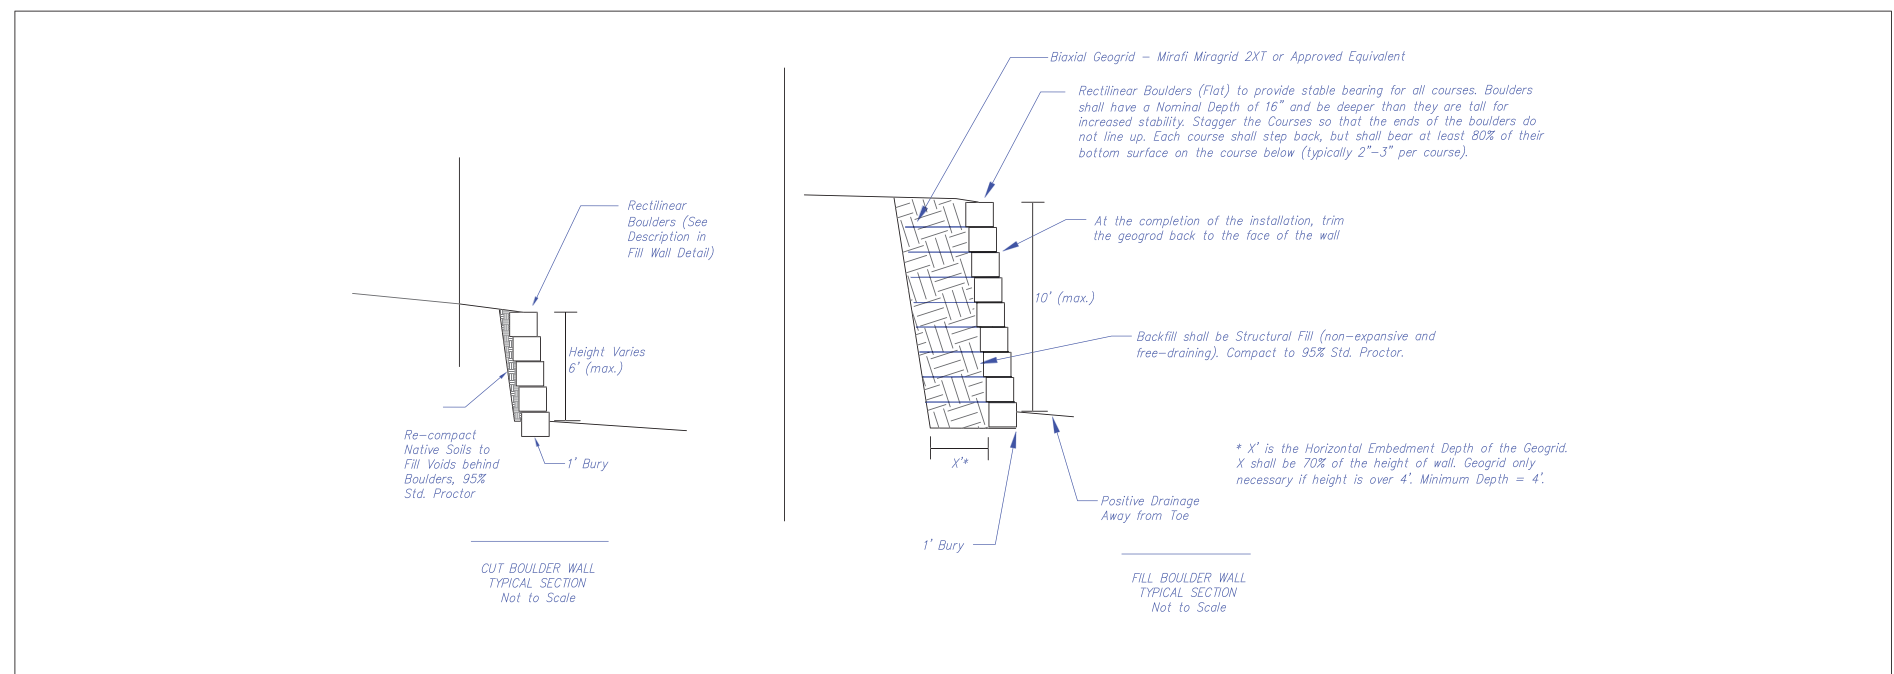 Rectilinear
Boulders (See
Description in
Fill Wall Detail)
Height Varies
6' (max.)
Re-compact
Native Soils to
Fill Voids behind
Boulders, 95%
Std. Proctor
1' Bury
CUT BOULDER WALL
TYPICAL SECTION
Not to Scale
Biaxial Geogrid - Mirafi Miragrid 2XT or Approved Equivalent
Rectilinear Boulders (Flat) to provide stable bearing for all courses. Boulders
shall have a Nominal Depth of 16" and be deeper than they are tall for
increased stability. Stagger the Courses so that the ends of the boulders do
not line up. Each course shall step back, but shall bear at least 80% of their
bottom surface on the course below (typically 2"-3" per course).
At the completion of the installation, trim
the geogrod back to the face of the wall
10' (max.)
Backfill shall be Structural Fill (non-expansive and
free-draining). Compact to 95% Std. Proctor.
* X' is the Horizontal Embedment Depth of the Geogrid.
X shall be 70% of the height of wall. Geogrid only
necessary if height is over 4'. Minimum Depth = 4'.
X'*
Positive Drainage
Away from Toe
1' Bury
FILL BOULDER WALL
TYPICAL SECTION
Not to Scale